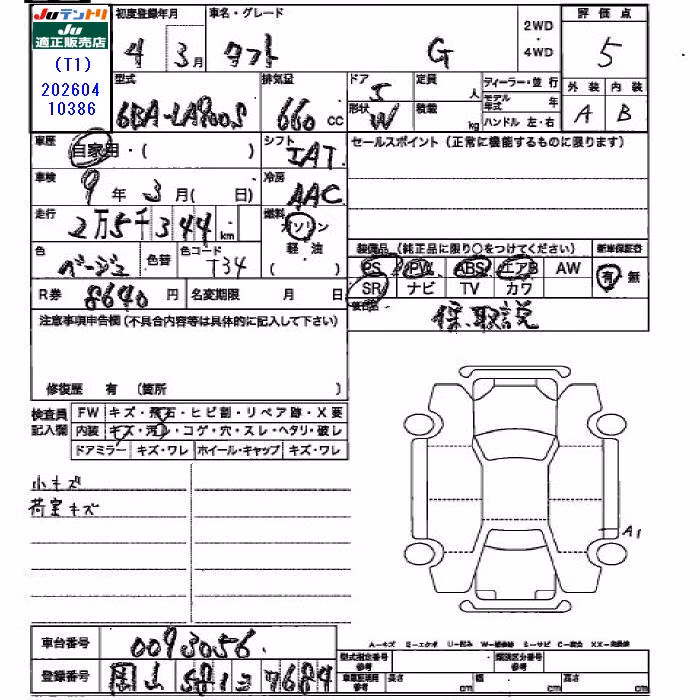 Juテントリ
Ju
適正販売店
(T1)
202604
10386
初度登録年月 車名・グレード 2WD・4WD 評価点
4 3月 タフト G 5
型式 排気量 ドア 定員 人 ディーラー・並行 外装 内装
6BA-LA900S 660 cc 5 形状 W 積載 kg モデル年式 年 A B
ハンドル 左・右
車歴 自家用・( ) シフト IAT セールスポイント(正常に機能するものに限ります)
車検 9年 3月( 日) 冷房 AAC
走行 2万5千344km 燃料 ガソリン 軽・油 ( )
色 ベージュ 色替 色コード T34
装備品(純正品に限り○をつけてください) 新車保証書
PS PW ABS エアB AW 有 無
SR ナビ TV カワ
R券 8640円 名変期限 月 日
後日品 保、取説
注意事項申告欄(不具合内容等は具体的に記入して下さい)
修復歴 有 (箇所 )
検査員記入欄 FW キズ・飛石・ヒビ割・リペア跡・X要
内装 キズ・汚レ・コゲ・穴・スレ・ヘタリ・破レ
ドアミラー キズ・ワレ ホイール・キャップ キズ・ワレ
小キズ
荷室キズ
A1
車台番号 0093056
A-キズ E-エクボ U-凹み W-補修跡 S-サビ C-腐食 XX-交換済
登録番号 岡山 581 7684
型式指定番号 参考 類別区分番号 参考
車庫証明用 参考 長さ cm 幅 cm 高さ cm